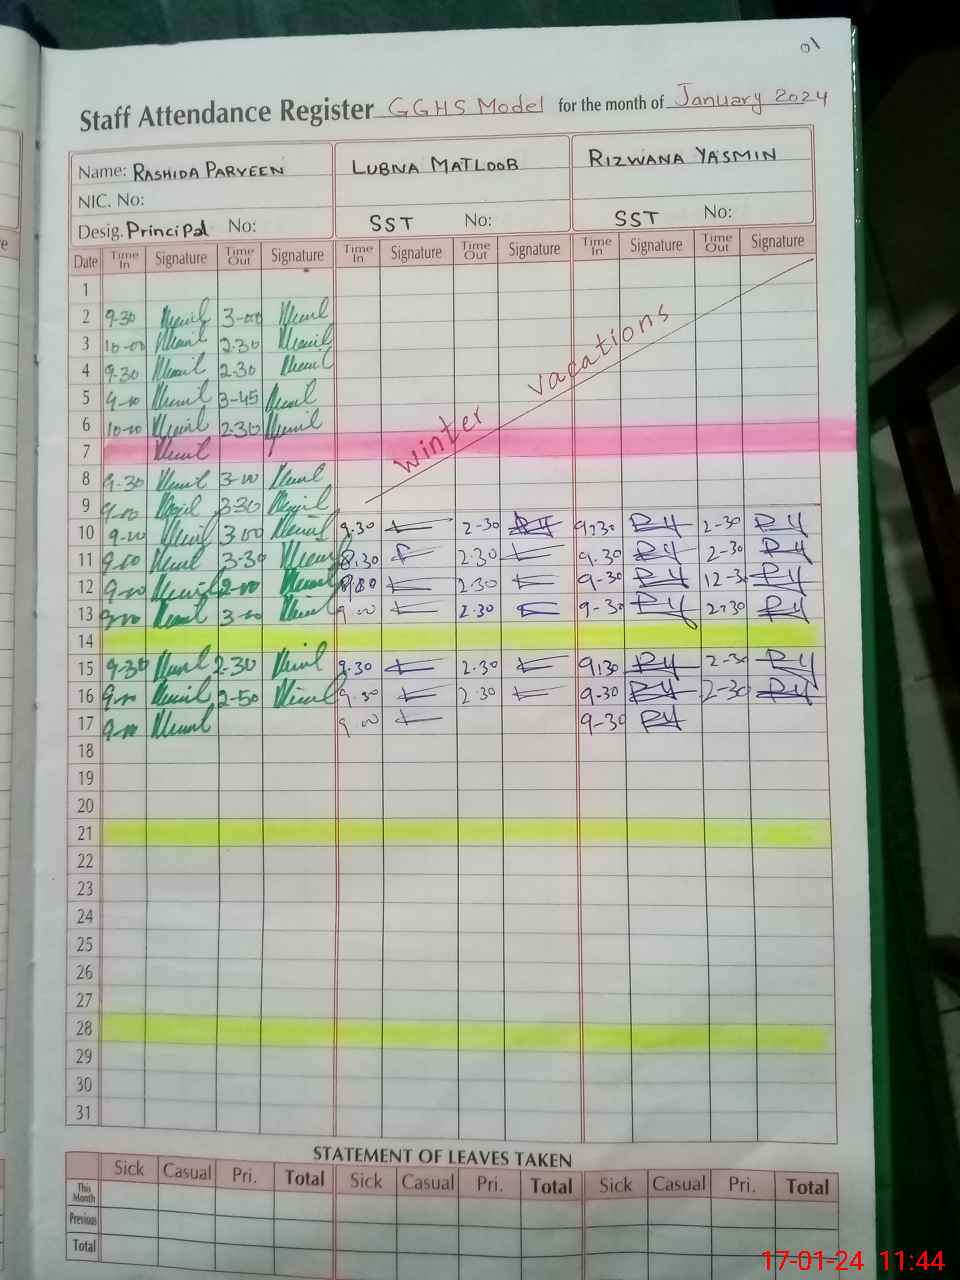 01
Staff Attendance Register GGHS Model for the month of January 2024
Name: RASHIDA PARVEEN LUBNA MATLOOB RIZWANA YASMIN
NIC. No:
Desig. Principal No: SST No: SST No:
Date Time In Signature Time Out Signature Time In Signature Time Out Signature Time In Signature Time Out Signature
1
2 9-30 3-00
3 10-00 2.30
4 9.30 2.30
5 9-00 3-45
6 10-00 2-30
7
winter vacations
8 9-30 3-00
9 9-00 3-30
10 9-00 3-00 9.30 2-30 9,30 2-30
11 9-00 3-30 8.30 2.30 9.30 2-30
12 9-00 2-00 2.30 9-30 12-30
13 9-00 3-00 9-00 2.30 9-30 2-30
14
15 9-30 2-30 9.30 2.30 9,30 2-30
16 9-00 2-50 9.30 2.30 9-30 2-30
17 9-00 9.00 9-30
18
19
20
21
22
23
24
25
26
27
28
29
30
31
STATEMENT OF LEAVES TAKEN
Sick Casual Pri. Total Sick Casual Pri. Total Sick Casual Pri. Total
This Month
Previous
Total
17-01-24 11:44